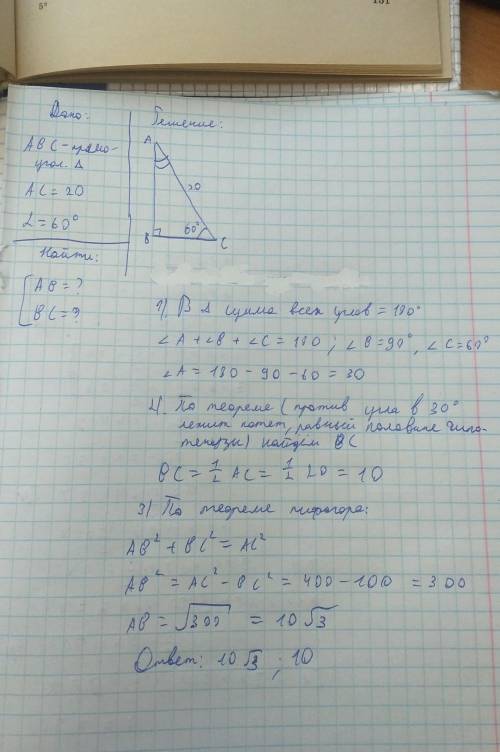 5*
131
Дано:
ABC-прямо-
угол. Δ
AC=20
L=60°
Найти:
AB=?
BC=?
Решение:
A
20
60°
B
C
1) В Δ сумма всех углов = 180°
∠A+∠B+∠C=180; ∠B=90°, ∠C=60°
∠A=180-90-60=30
2) По теореме (против угла в 30°
лежит катет, равный половине гипо-
тенузы) найдем BC
BC=1/2 AC=1/2 20=10
3) По теореме пифагора:
AB²+BC²=AC²
AB²=AC²-BC²=400-100=300
AB=√300=10√3
Ответ: 10√3; 10